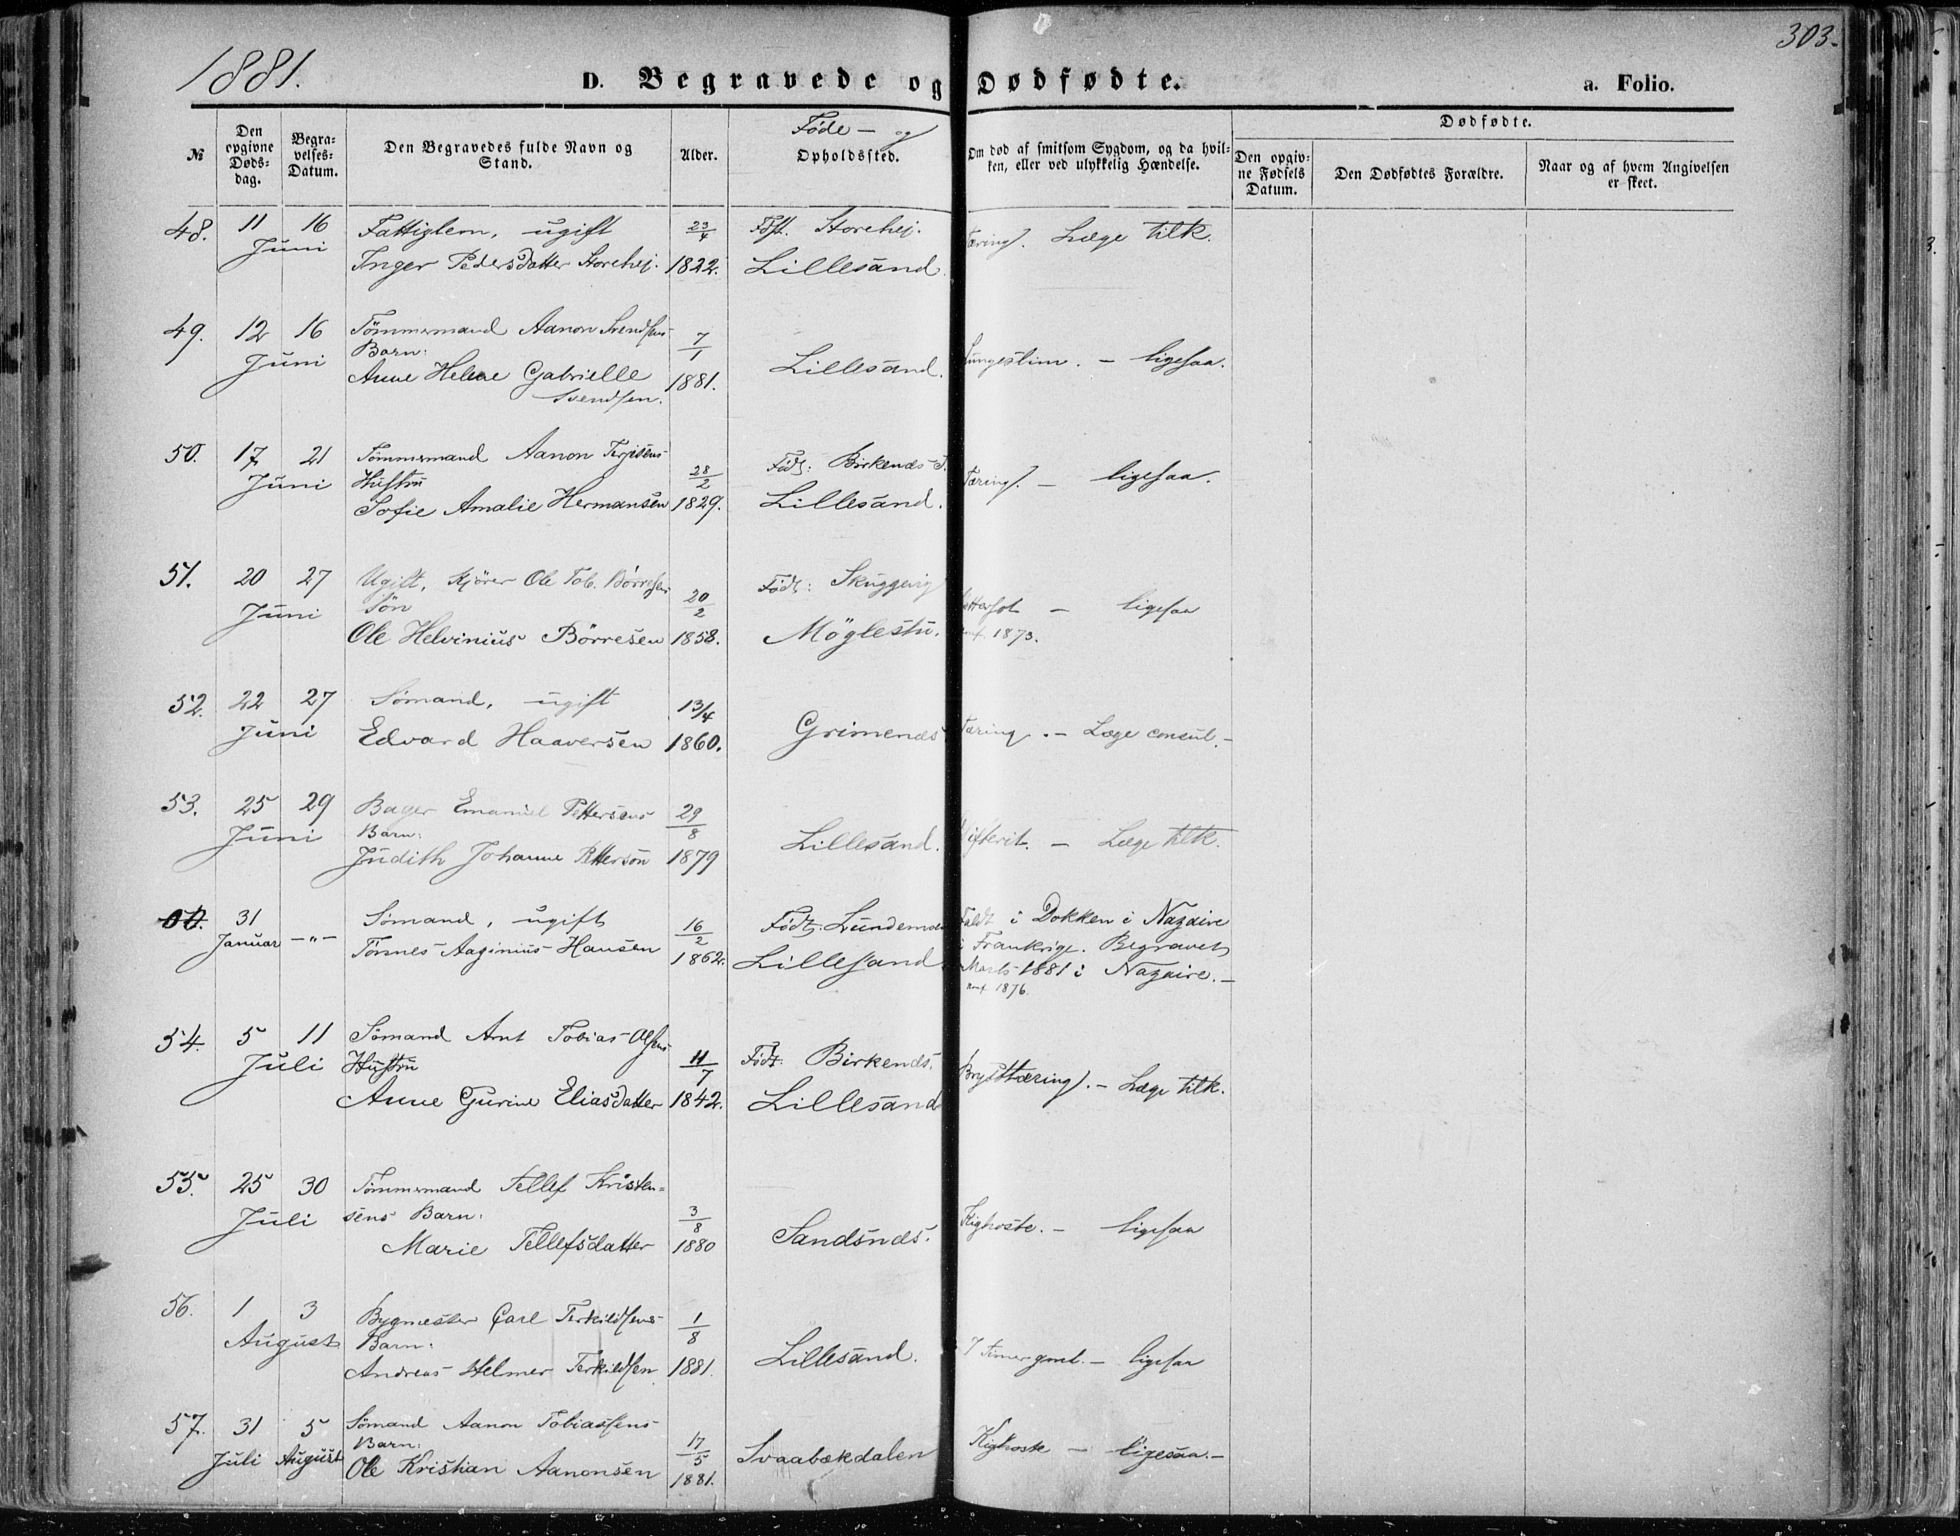 1881.
303.
D. Begravede og Dødfødte.
a. Folio.
№
Den opgivne Døds-dag.
Begra-velses-Datum.
Den Begravedes fulde Navn og Stand.
Alder.
Føde- og
Opholdssted.
Om død af smitsom Sygdom, og da hvil-ken, eller ved ulykkelig Hændelse.
Dødfødte.
Den opgiv-ne Fødsels Datum.
Den Dødfødtes Forældre.
Naar og af hvem Angivelsen er skeet.
48. 11 16 Fattiglem, ugift 23/4 Født. Storehej. Tæring. Læge tilk.
Juni Inger Pedersdatter Storehej. 1822. Lillesand.
49. 12 16 Tömmermand Aanon Svendsens
Juni Barn: 7/1 Lillesand. Lungeslim. – ligesaa.
Anne Helene Gabrielle 1881.
Svendsen.
50. 17 21 Tömmermand Aanon Terjesens
Juni Hustru 28/2 Født: Birkenæs Tæring. – ligesaa.
Sofie Amalie Hermansen 1829. Lillesand.
51. 20 27 Ugift, Kjörer Ole Tob. Börresens
Juni Sön 20/2 Født: Skuggevig – ligesaa
Ole Helvinius Börresen 1858. Möglestu. 1873.
52. 22 27 Sömand, ugift 13/4
Juni Edvard Haaversen 1860. Grimenæs Tæring. – Læge consul.–
53. 25 29 Bager Emanuel Pettersens 29/8
Juni Barn: Lillesand. Difterit. – Læge tilk.
Judith Johanne Petterson 1879
00. 31 Sömand, ugift 16/2 Født: Faldt i Dokken i Nazaire
Januar –"– Tönnes Aaginius Hansen 1862. Lillesand i Frankrige. Begravet
Marts 1881 i Nazaire. –
1876.
54. 5 11 Sömand Arnt Tobias Olsens
Juli Hustru 11/7 Født: Birkenæs. Brysttæring. – Læge tilk.
Anne Gurine Eliasdatter 1842. Lillesand
55. 25 30 Tömmermand Tellef Kristen-
Juli sens Barn: 3/8 Sandsnæs. Kighoste. – ligesaa
Marie Tellefsdatter 1880
56. 1 3 Bygmester Carl Terkildsens
August Barn: 1/8 Lillesand. 7 timer gml. – ligesaa
Andreas Helmer Terkildsen 1881.
57. 31 5 Sömand Aanon Tobiassens
Juli August Barn: 17/5 Svaabækdalen Kighoste – ligesaa. –
Ole Kristian Aanonsen 1881.